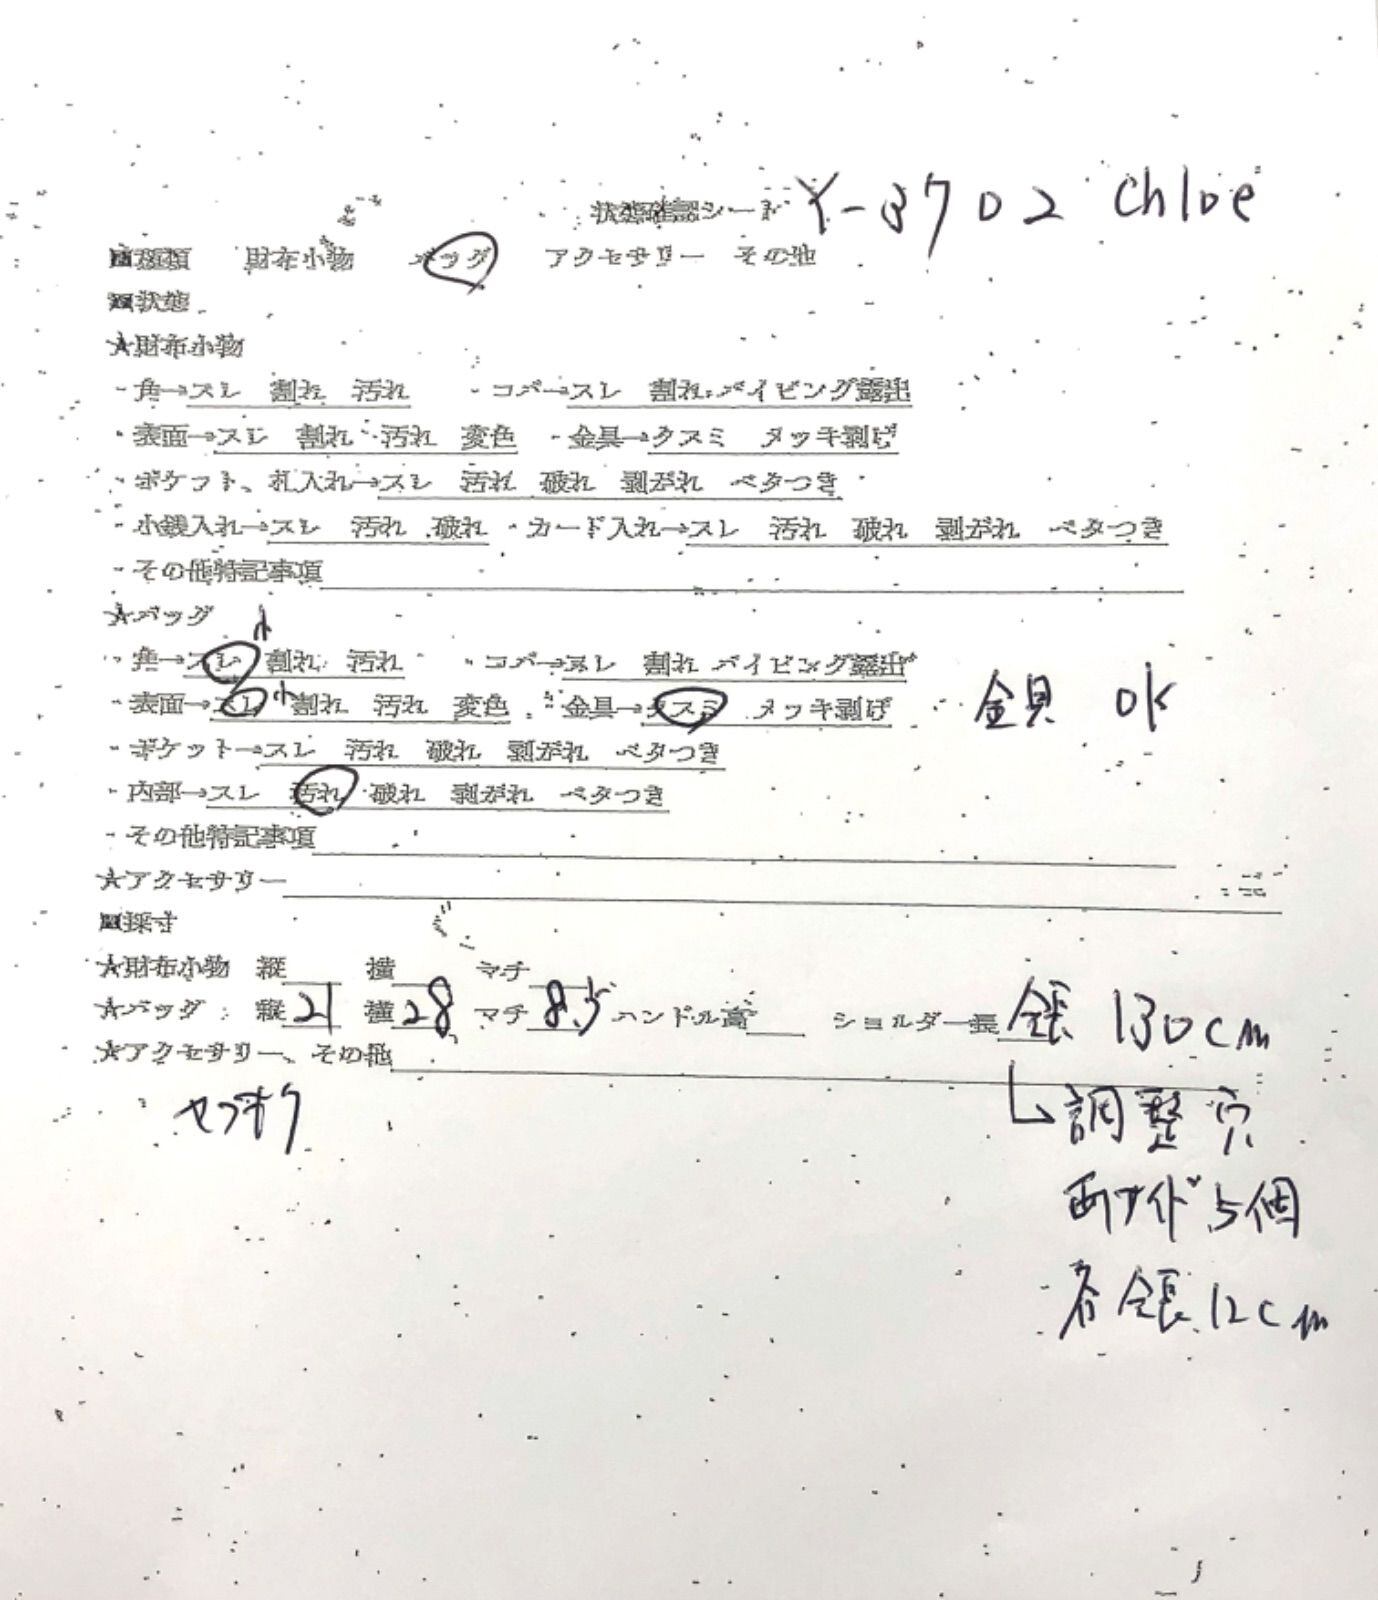 状態確認シート Y-3702 Chloe
■種類 財布小物 バッグ アクセサリー その他
■状態
★財布小物
・角→スレ 割れ 汚れ ・コバ→スレ 割れ パイピング露出
・表面→スレ 割れ 汚れ 変色 ・金具→クスミ メッキ剥げ
・ポケット、札入れ→スレ 汚れ 破れ 剥がれ ベタつき
・小銭入れ→スレ 汚れ 破れ ・カード入れ→スレ 汚れ 破れ 剥がれ ベタつき
・その他特記事項
★バッグ
・角→スレ 小 割れ 汚れ ・コバ→スレ 割れ パイピング露出
・表面→スレ 小 割れ 汚れ 変色 ・金具→クスミ メッキ剥げ 金具 OK
・ポケット→スレ 汚れ 破れ 剥がれ ベタつき
・内部→スレ 汚れ 破れ 剥がれ ベタつき
・その他特記事項
★アクセサリー
■採寸
★財布小物 縦 横 マチ
★バッグ 縦 21 横 28 マチ 8.5 ハンドル高 ショルダー長 全長 130cm
★アクセサリー、その他
ヤフオク
調整穴
両サイド 5個
各全長 12cm